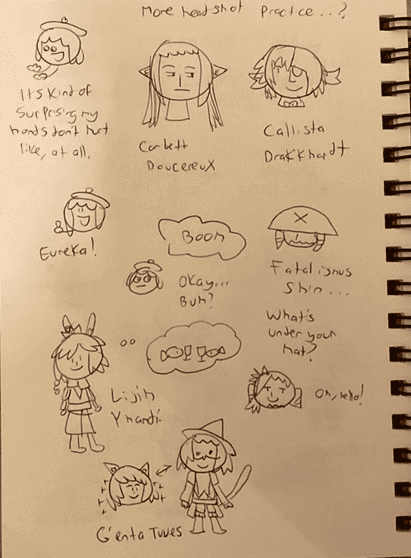 More headshot Practice...?
It's kind of
surprising my
hands don't hurt
like, at all.
Corbett
Doucereux
Callista
Drakkhardt
Eureka!
Boom
Okay...
Buh?
Fatalignus
Shin...
What's
under your
hat?
Oh, hello!
Lijin
Ynardi
G'enta Tuves